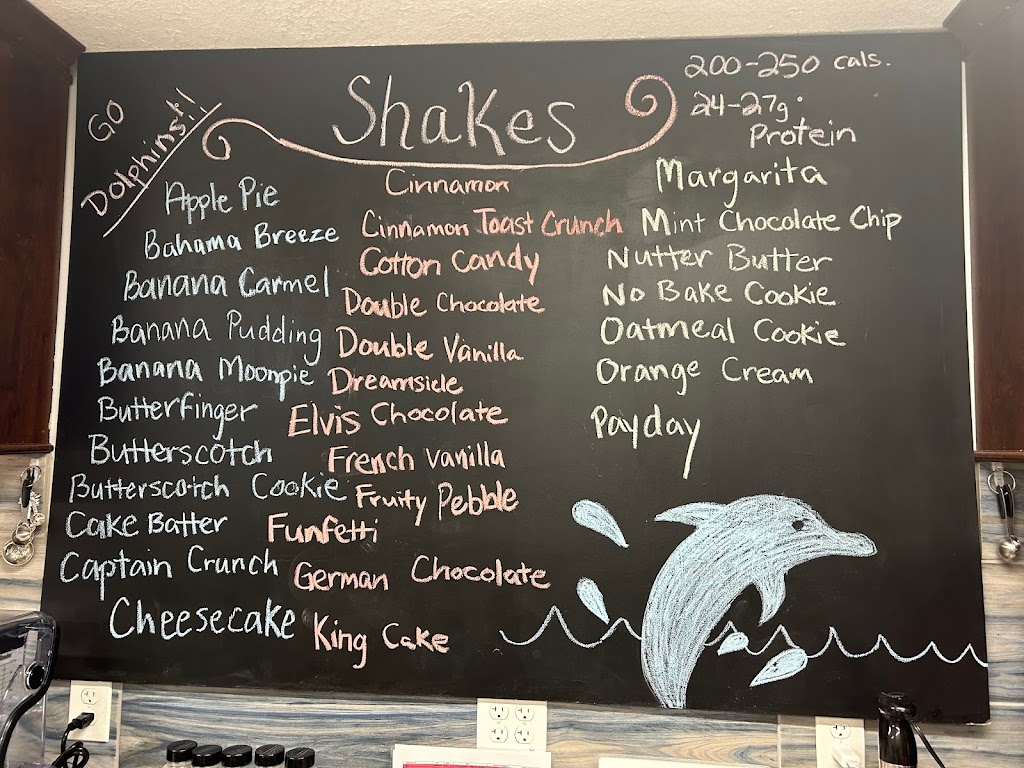 GO
Dolphins!!
Shakes
200-250 cals.
24-27g.
Protein
Apple Pie
Bahama Breeze
Banana Carmel
Banana Pudding
Banana Moonpie
Butterfinger
Butterscotch
Butterscotch Cookie
Cake Batter
Captain Crunch
Cheesecake
Cinnamon
Cinnamon Toast Crunch
Cotton Candy
Double Chocolate
Double Vanilla
Dreamsicle
Elvis Chocolate
French Vanilla
Fruity Pebble
Funfetti
German Chocolate
King Cake
Margarita
Mint Chocolate Chip
Nutter Butter
No Bake Cookie
Oatmeal Cookie
Orange Cream
Payday